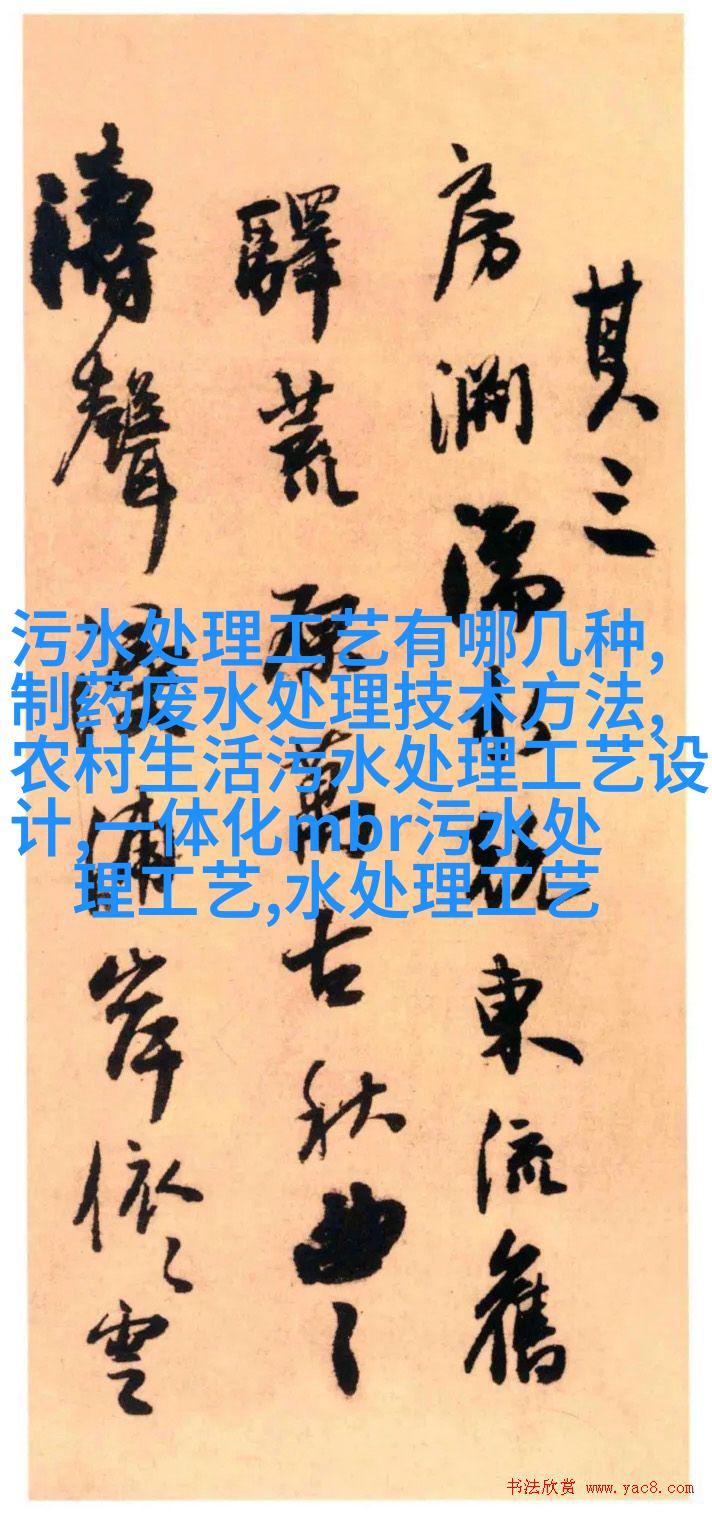 其三
房渊濡水北東流舊
驛荒原萬古秋曲〻
濤聲浦岸依〻雲
污水处理工艺有哪几种,
制药废水处理技术方法,
农村生活污水处理工艺设
计,一体化mbr污水处
理工艺,水处理工艺
书法欣赏 www.yac8.com